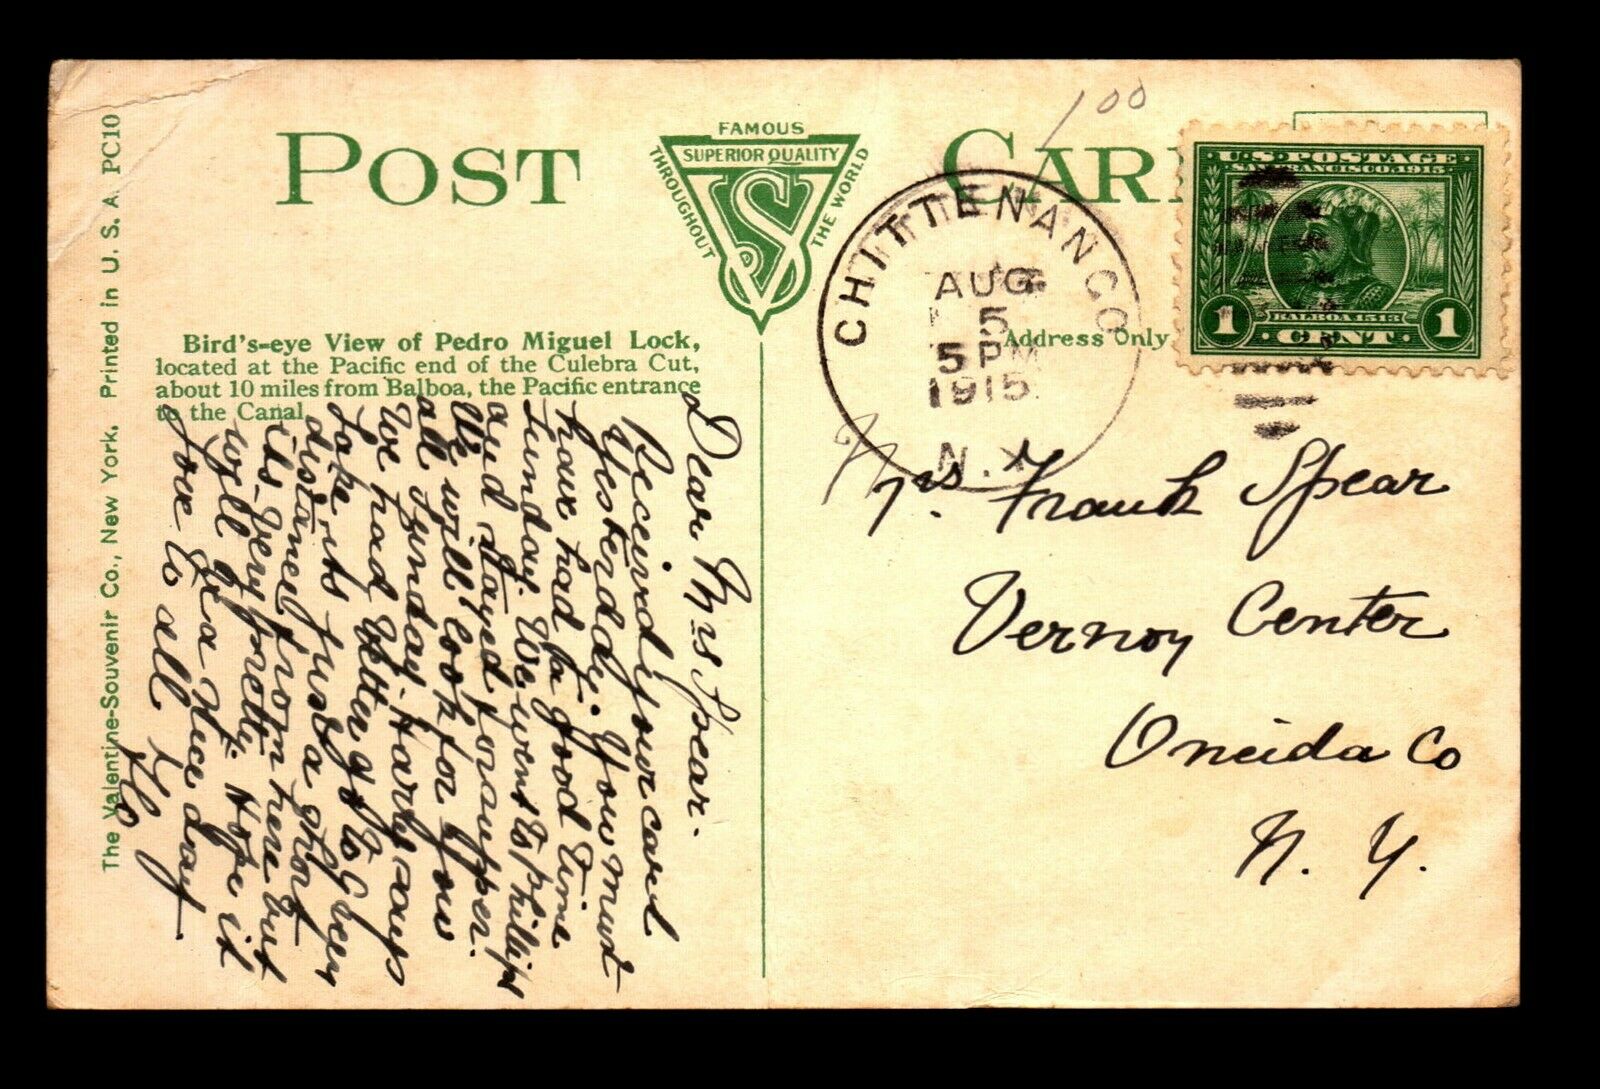 POST CARD
FAMOUS
THROUGHOUT
THE WORLD
SUPERIOR QUALITY
VS
1 00
Bird's-eye View of Pedro Miguel Lock,
located at the Pacific end of the Culebra Cut,
about 10 miles from Balboa, the Pacific entrance
to the Canal.
The Valentine-Souvenir Co., New York. Printed in U. S. A. PC10
Address Only
CHITTENANGO
AUG
5
5 PM
1915
N.Y.
U.S. POSTAGE
SAN FRANCISCO 1915
BALBOA 1513
1 CENT 1
Dear Mrs Spear.
Received your card
yesterday. You must
have had a good time
Sunday. We went to Phillips
and stayed for supper.
We will look for you
all Sunday. Harley says
we had better go to Green
Lake its just a short
distance from here but
its very pretty. Hope it
will be a nice day
Love to all
Mrs. Frank Spear
Vernon Center
Oneida Co
N. Y.